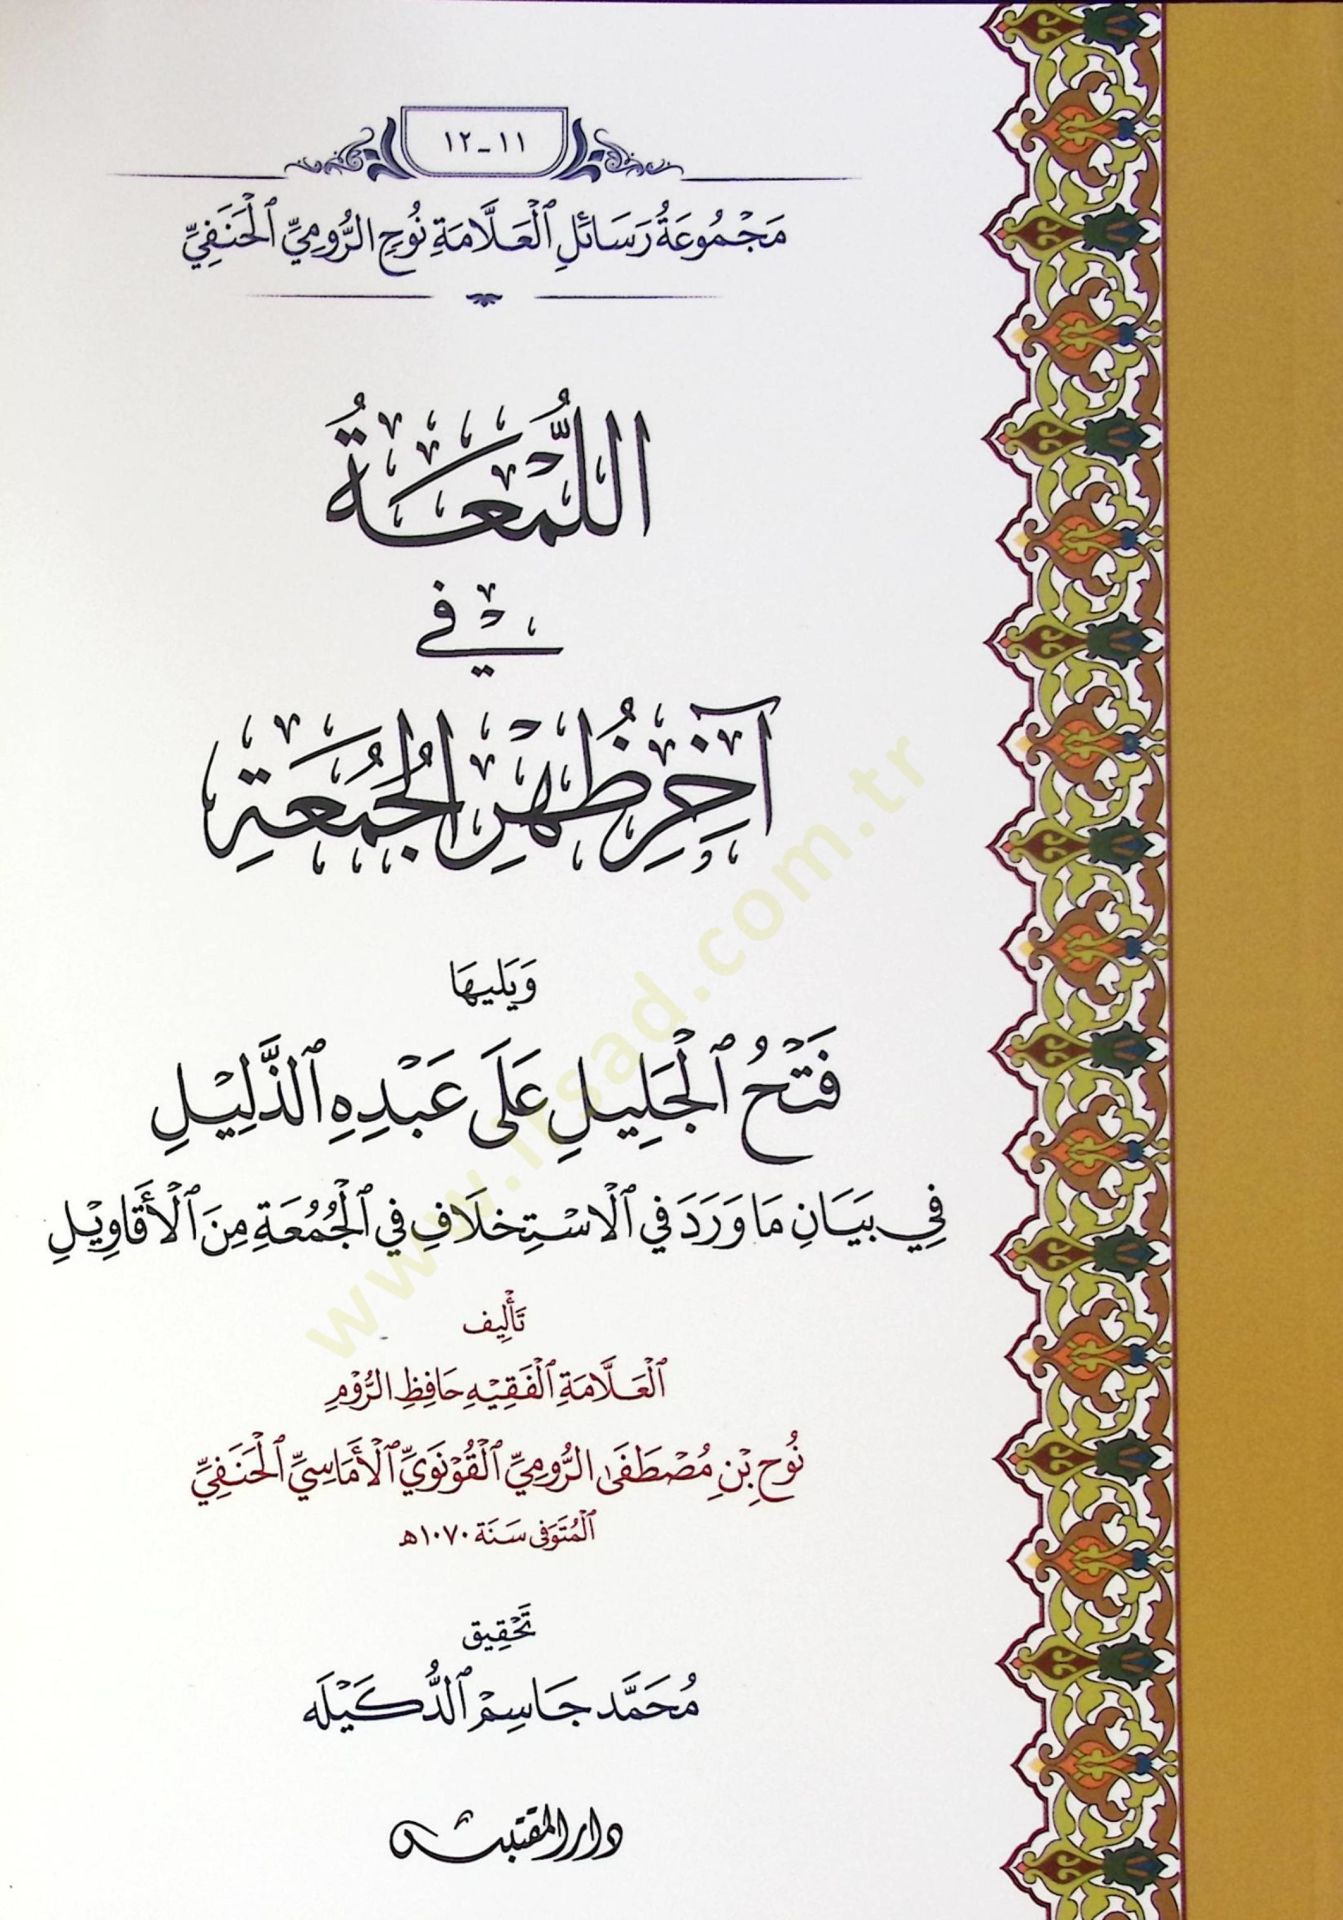 ١١-١٢
مَجْمُوعَةُ رَسَائِلِ الْعَلَّامَةِ نُوحِ الرُّومِيِّ الْحَنَفِيِّ
اللُّمْعَةُ
فِي
آخِرِ ظُهْرِ الْجُمُعَةِ
وَيَليهَا
فَتْحُ الْجَلِيلِ عَلَى عَبْدِهِ الذَّلِيْلِ
فِي بَيَانِ مَا وَرَدَ فِي الْاسْتِخلَافِ فِي الْجُمُعَةِ مِنَ الْأَقَاوِيْلِ
تَأْلِيف
الْعَلَّامَةِ الْفَقِيْهِ حَافِظِ الرُّوْمِ
نُوحِ بْنِ مُصْطَفَى الرُّومِيِّ الْقُوْنَوَيِّ الْأَمَاسِيِّ الْحَنَفِيِّ
الْمُتَوَفى سَنَة ١٠٧٠هـ
تَحْقِيق
مُحَمَّد جَاسِمْ الدُّكَيْلَه
دار المقتبس
www.irsad.com.tr